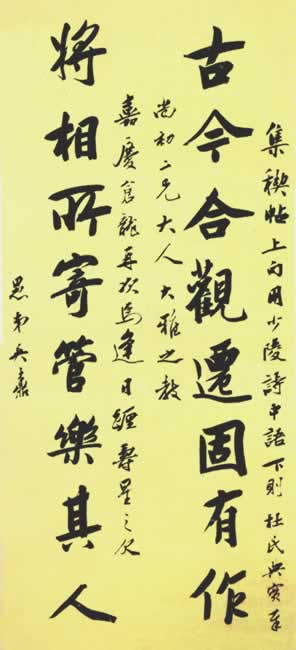 集稧帖上句用少陵詩中語下則杜氏典實
古今合觀遷固有作
尚初二兄大人大雅之教
嘉慶倉龍再次焉逢日纏壽星之次
將相所寄管樂其人
愚弟吳鼒